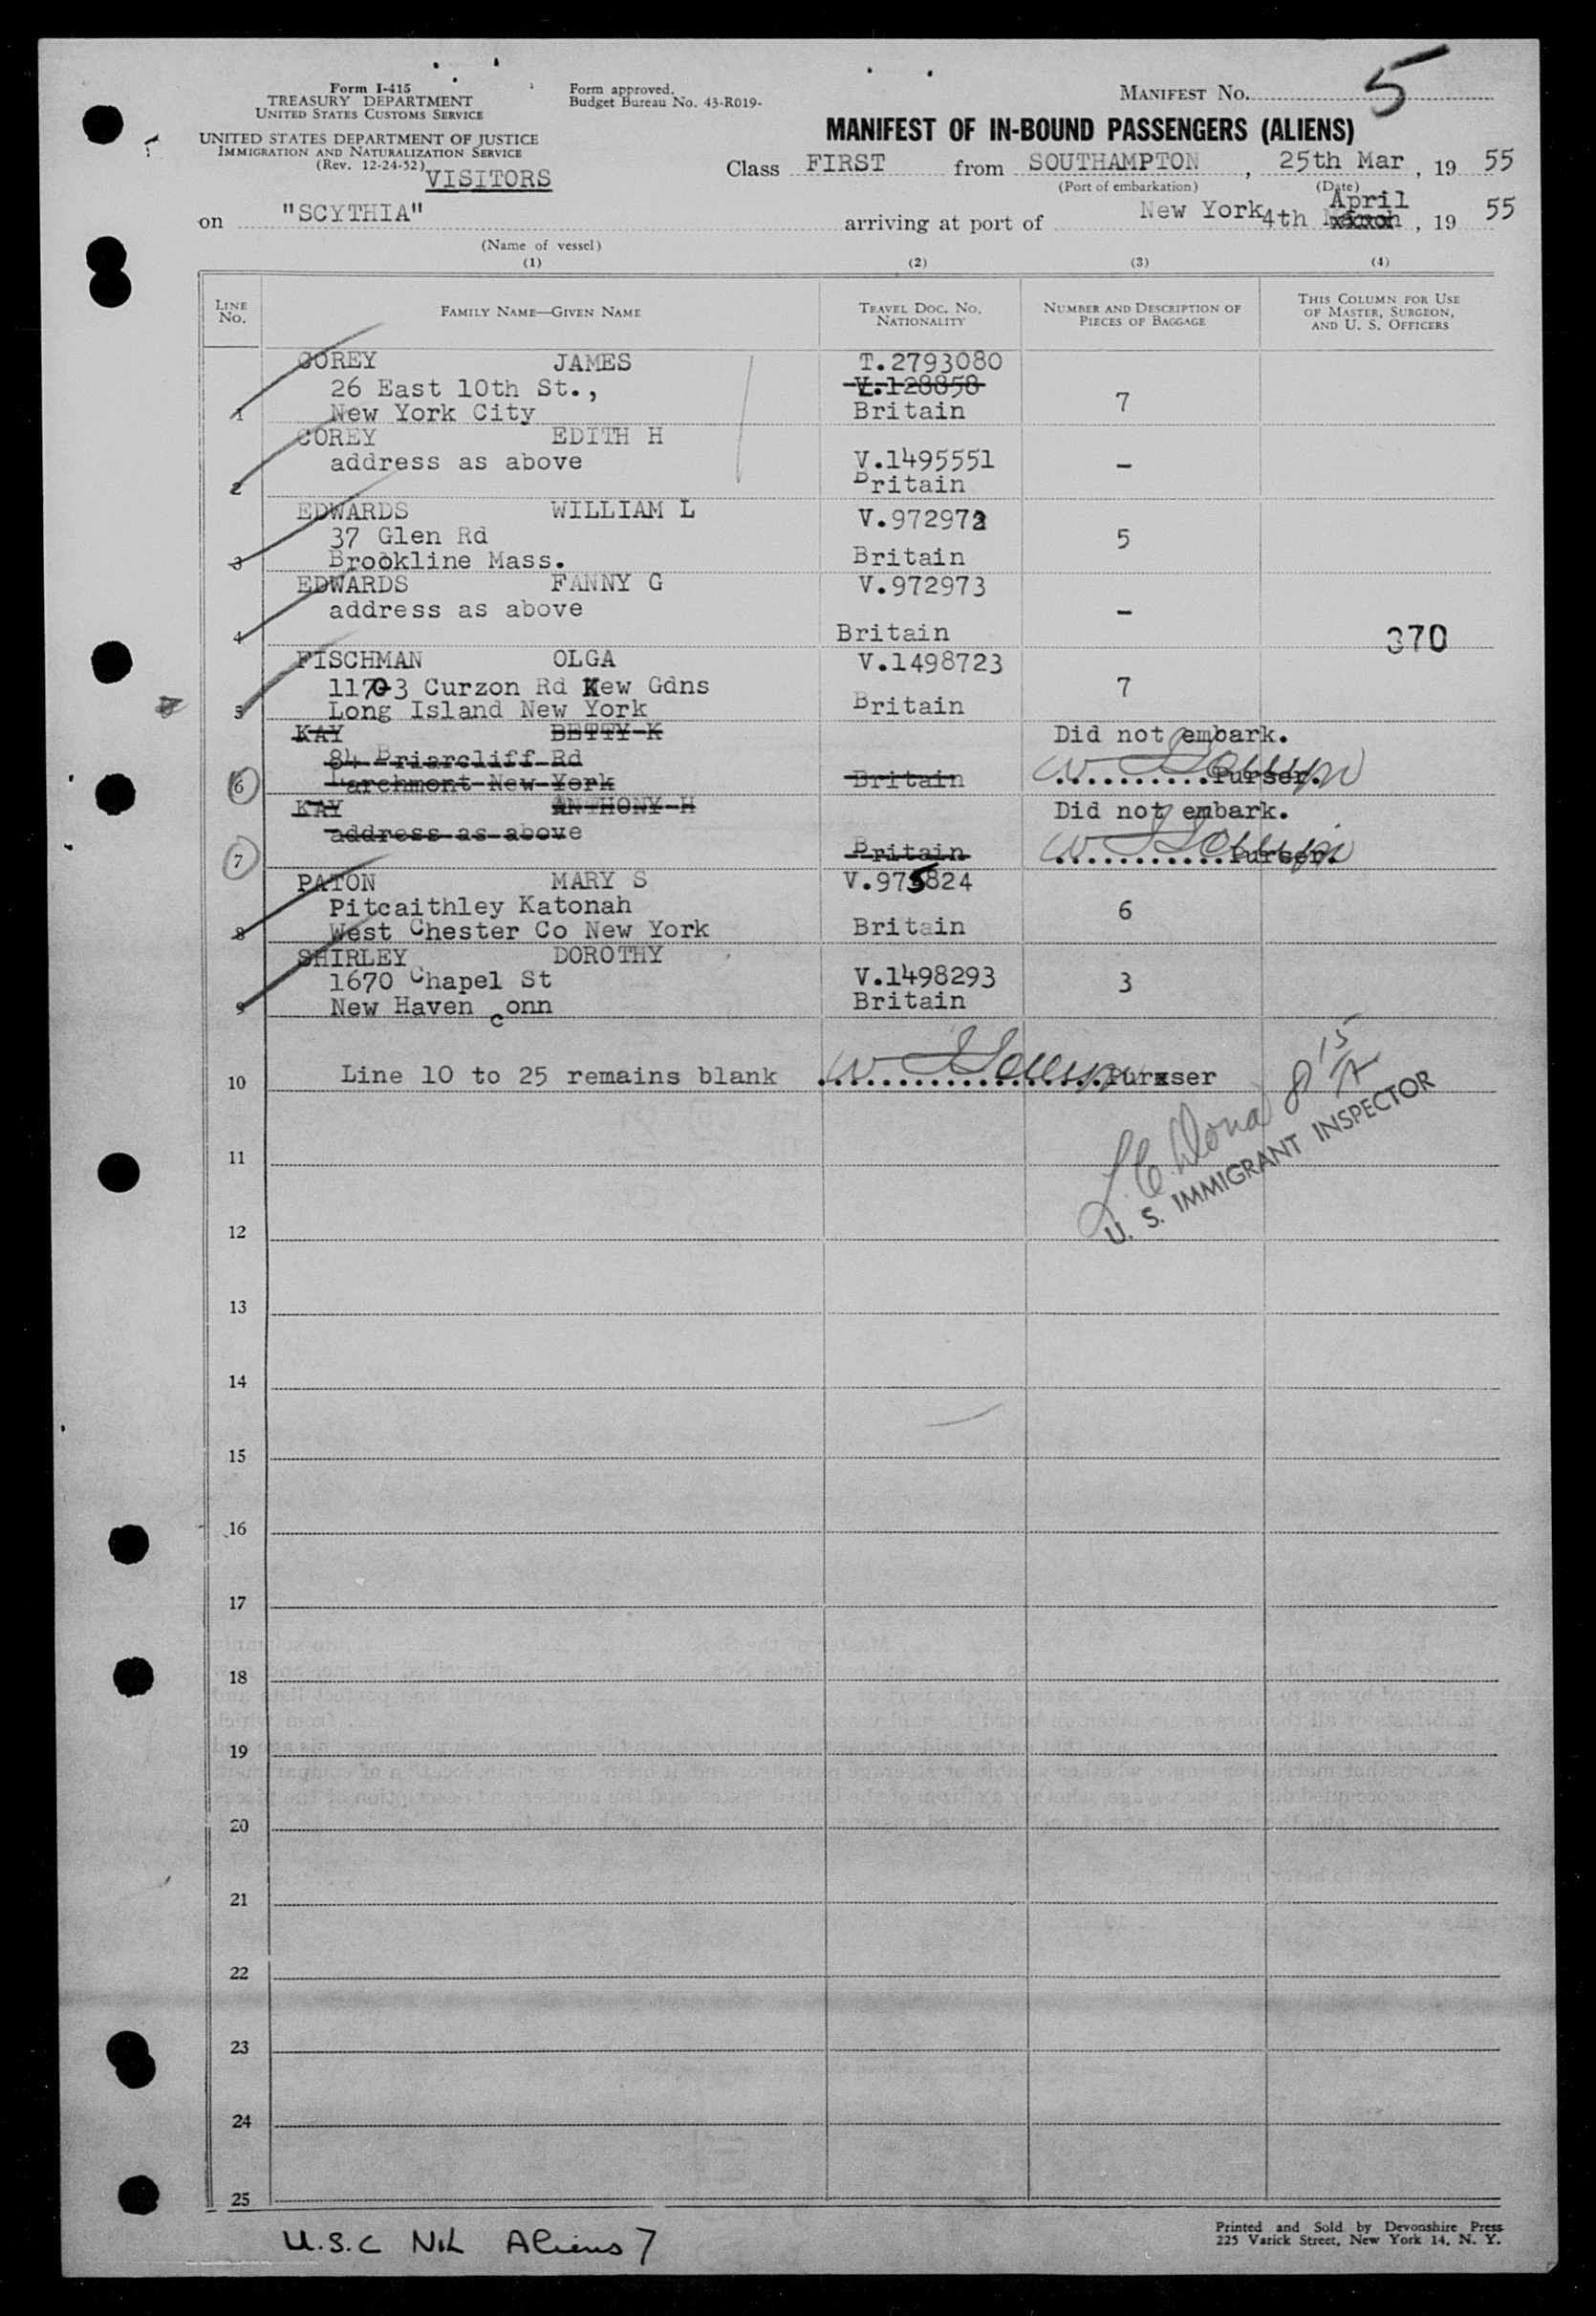 Form I-415
TREASURY DEPARTMENT
UNITED STATES CUSTOMS SERVICE
UNITED STATES DEPARTMENT OF JUSTICE
IMMIGRATION AND NATURALIZATION SERVICE
(Rev. 12-24-52)
VISITORS
Form approved.
Budget Bureau No. 43-R019-
MANIFEST NO. 5
MANIFEST OF IN-BOUND PASSENGERS (ALIENS)
Class FIRST from SOUTHAMPTON, 25th Mar, 19 55
(Port of embarkation) (Date)
April
on "SCYTHIA" arriving at port of New York 4th March, 19 55
(Name of vessel)
(1) (2) (3) (4)
LINE NO.
FAMILY NAME—GIVEN NAME
TRAVEL DOC. NO. NATIONALITY
NUMBER AND DESCRIPTION OF PIECES OF BAGGAGE
THIS COLUMN FOR USE OF MASTER, SURGEON, AND U. S. OFFICERS
COREY JAMES T.2793080
26 East 10th St., V.128858
1 New York City Britain 7
COREY EDITH H
address as above V.1495551 -
2 Britain
EDWARDS WILLIAM L V.972972
37 Glen Rd 5
3 Brookline Mass. Britain
EDWARDS FANNY G V.972973
address as above -
4 Britain 370
FISCHMAN OLGA V.1498723
11703 Curzon Rd Kew Gdns 7
5 Long Island New York Britain
KAY BETTY K Did not embark.
84 Briarcliff Rd
6 Larchmont New York Britain Purser.
KAY ANTHONY H Did not embark.
address as above
7 Britain Purser.
PATON MARY S V.975824
Pitcaithley Katonah 6
8 West Chester Co New York Britain
SHIRLEY DOROTHY
1670 Chapel St V.1498293 3
9 New Haven Conn Britain
10 Line 10 to 25 remains blank Purxser
U. S. IMMIGRANT INSPECTOR
11
12
13
14
15
16
17
18
19
20
21
22
23
24
25
U.S.C NiL Aliens 7
Printed and Sold by Devonshire Press
225 Varick Street, New York 14, N. Y.